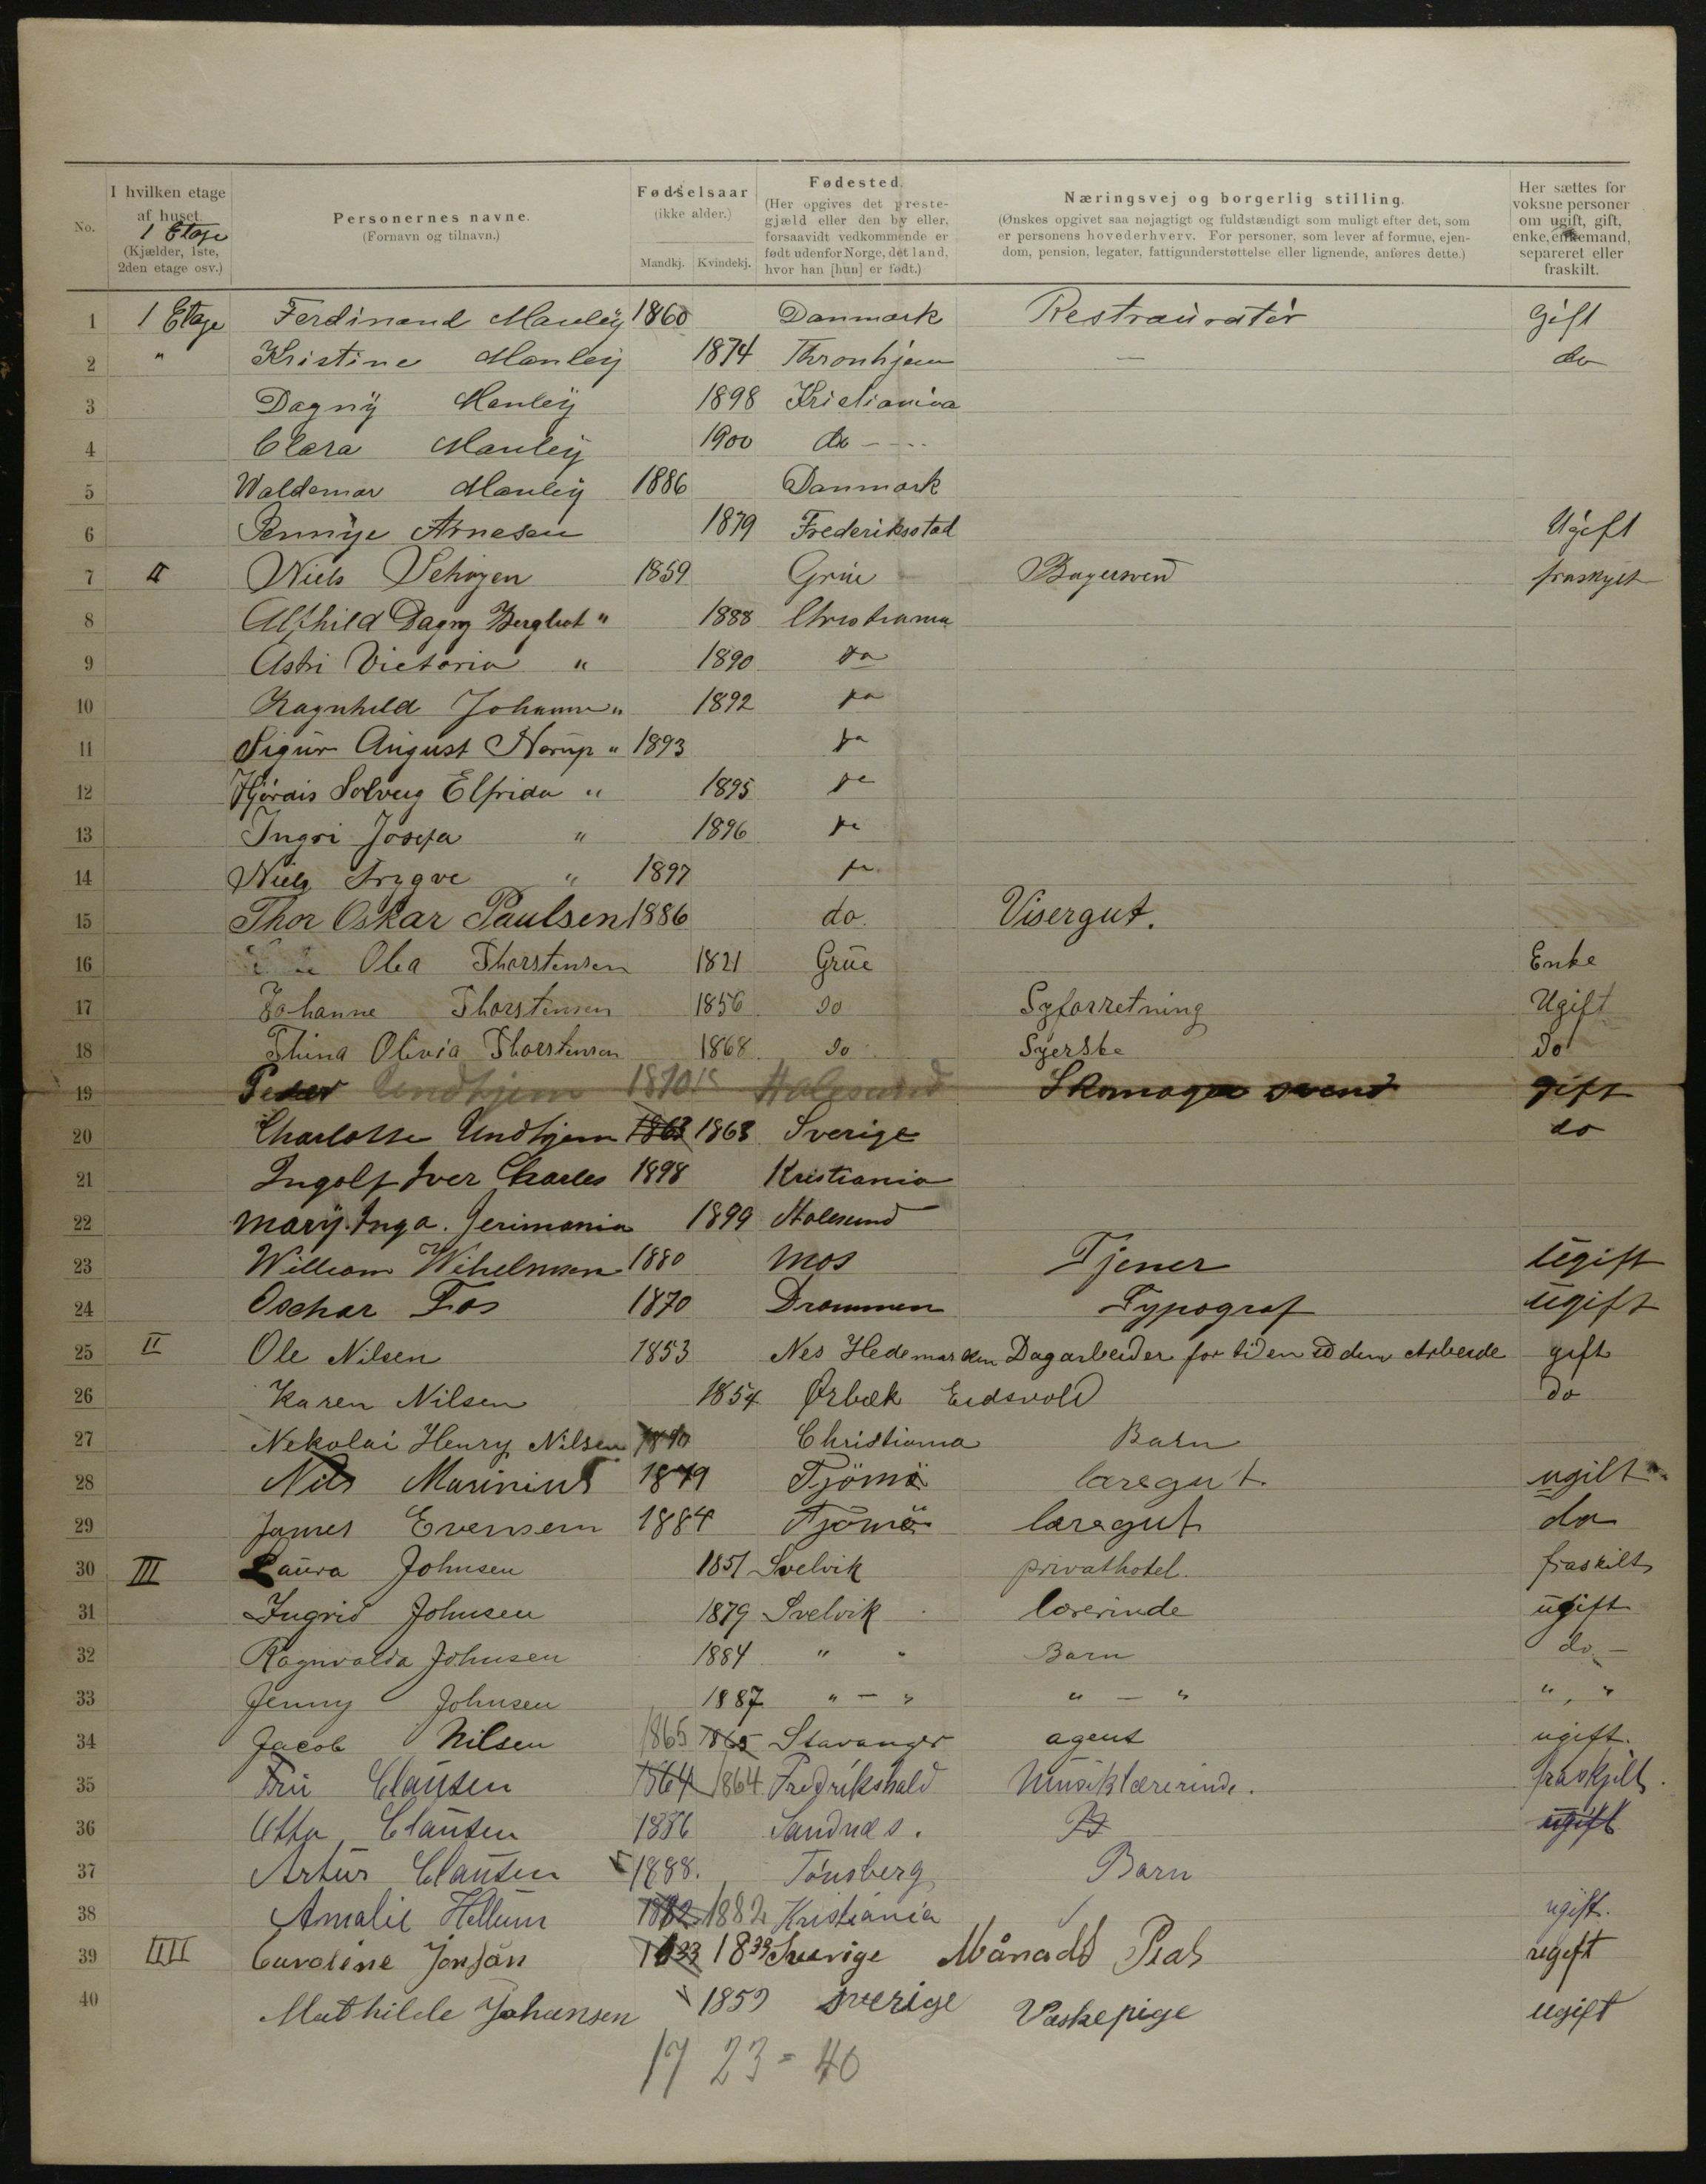 No. | I hvilken etage af huset. 1 Etage (Kjælder, 1ste, 2den etage osv.) | Personernes navne. (Fornavn og tilnavn.) | Fødselsaar (ikke alder.) Mandkj. Kvindekj. | Fødested. (Her opgives det prestegjæld eller den by eller, forsaavidt vedkommende er født udenfor Norge, det land, hvor han [hun] er født.) | Næringsvej og borgerlig stilling. (Ønskes opgivet saa nøjagtigt og fuldstændigt som muligt efter det, som er personens hovederhverv. For personer, som lever af formue, ejendom, pension, legater, fattigunderstøttelse eller lignende, anføres dette.) | Her sættes for voksne personer om ugift, gift, enke, enkemand, separeret eller fraskilt.
1 1 Etage Ferdinand Manley 1860 Danmark Restrauratør gift
2 " Kristine Manley 1874 Thronhjem — do
3 Dagny Manley 1898 Kristianiaa
4 Clara Manley 1900 do - - - -
5 Waldemar Manley 1886 Danmark
6 Arnesen 1879 Frederiksstad Ugift
7 II Niels 1859 Grue Bagersvend fraskylt
8 Alfhild Dagny Bergliot " 1888 Christiania
9 Astri Victoria " 1890 do
10 Ragnhild Johanne " 1892 do
11 Sigur August Norup " 1893 do
12 Hjørdis Solveig Elfrida " 1895 do
13 Ingri Josefa " 1896 do
14 Niels Trygve " 1897 do
15 Thor Oskar Paulsen 1886 do. Visergut.
16 Olea Thorstensen 1821 Grue Enke
17 Johanne Thorstensen 1856 do Syforretning Ugift
18 Thina Olivia Thorstensen 1868 do Syerske Do
19 Peder Undhjem 1870 Aalesund Skomager svend gift
20 Charlotte Undhjem 1863 1863 Sverige do
21 Ingolf Iver Charles 1898 Kristiania
22 Mary. Inga. Jerimania 1899 Aalesund
23 William Wihelmsen 1880 Mos Tjener ugift
24 Oschar Fos 1870 Drammen Typograf ugift
25 II Ole Nilsen 1853 Nes Hedemarken Dagarbeider for tiden uden Arbeide gift
26 Karen Nilsen 1854 Ørbæk Eidsvold Do
27 Nekolai Henry Nilsen 1890 Christiania Barn
28 Nils Marinius 1879 Tjömö læregut. ugilt
29 James Evensen 1884 Tjömö læregut do
30 III Laura Johnsen 1851 Svelvik privathotel. fraskilt
31 Ingrid Johnsen 1879 Svelvik lærerinde ugift
32 Ragnvalda Johnsen 1884 " " Barn do. -
33 Jenny Johnsen 1887 " - " " - " ", "
34 Jacob Nilsen 1865 1865 Stavanger agent ugift.
35 Fru Clausen 1864 1864 Fredrikshald Musiklærerinde. fraskjilt.
36 Otto Clausen 1886 Sandnæs. B ugift
37 Artur Clausen 1888. Tønsberg Barn
38 Amalie Hellum 1882 1882 Kristiania ugift.
39 IIII Caroline Jonsån 1833 1833 Sverige Månads Pias ugift
40 Mathilde Johansen 1859 Sverige Vaskepige ugift
17 23 = 40